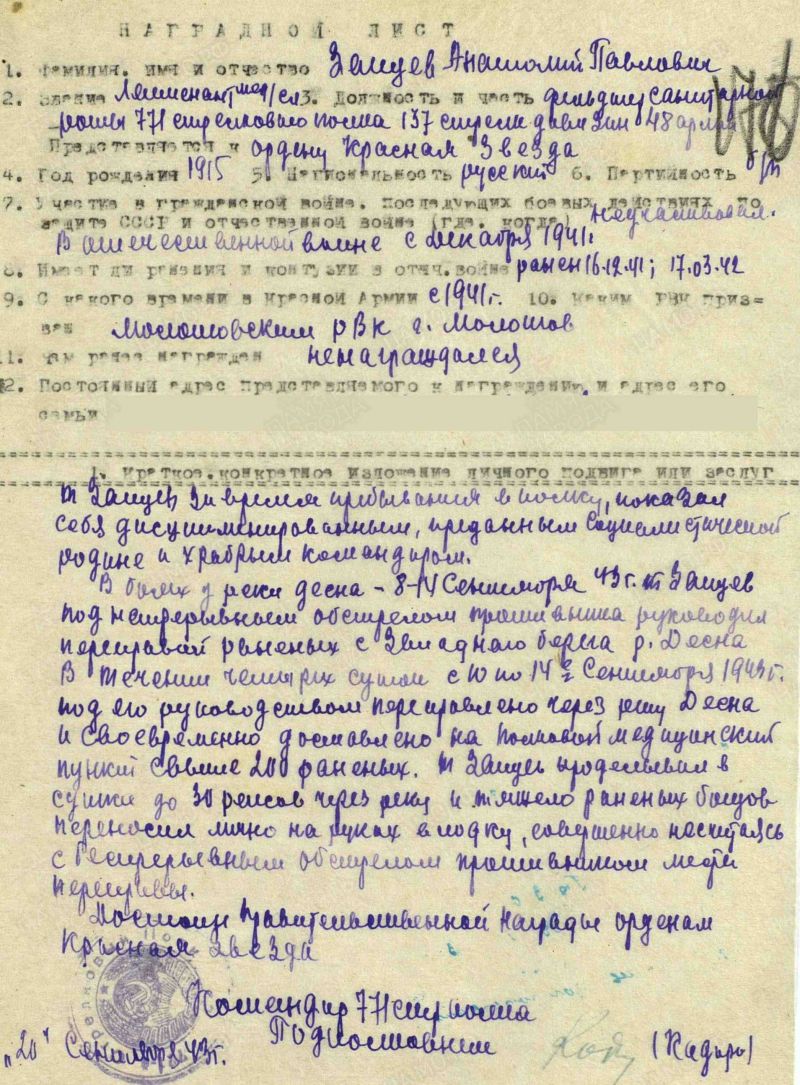 НАГРАДНОЙ ЛИСТ
1. Фамилия, имя и отчество Зайцев Анатолий Павлович
2. Звание Лейтенант мед/сл 3. Должность и часть фельдшер санитарной
роты 771 стрелкового полка 137 стрелк дивизии 48 армии
Представляется к ордену Красная Звезда
4. Год рождения 1915 5. Национальность русский 6. Партийность б/п
7. Участие в гражданской войне, последующих боевых действиях по
защите СССР и отечественной войне (где, когда) неучаствовал.
В отечественной войне с Декабря 1941г.
8. Имеет ли ранения и контузии в отеч.войне ранен 16.12.41; 17.03.42
9. С какого времени в Красной Армии с 1941г. 10. Каким РВК приз=
ван Молотовским РВК г. Молотов
11. Чем ранее награжден ненаграждался
12. Постоянный адрес представляемого к награждению и адрес его
семьи
1. Краткое, конкретное изложение личного подвига или заслуг
т Зайцев за время пребывания в полку, показал
себя дисциплинированным, преданным Социалистической
родине и храбрым командиром.
В боях у реки десна - 8-14 Сентября 43 г. т Зайцев
под непрерывным обстрелом противника руководил
переправой раненых с Западного берега р. Десна
В течении четырех суток с 10 по 14 Сентября 1943г.
под его руководством переправлено через реку Десна
и своевременно доставлено на полковой медицинский
пункт свыше 200 раненых. т Зайцев проделывал в
сутки до 30 рейсов через реку и тяжело раненых бойцов
переносил лично на руках в лодку, совершенно несчитаясь
с беспрерывным обстрелом противником места
переправы.
Достоин правительственной награды орденом
Красная звезда
Командир 771 стр полка
Подполковник (Кадыро)
"20" Сентября 43г.